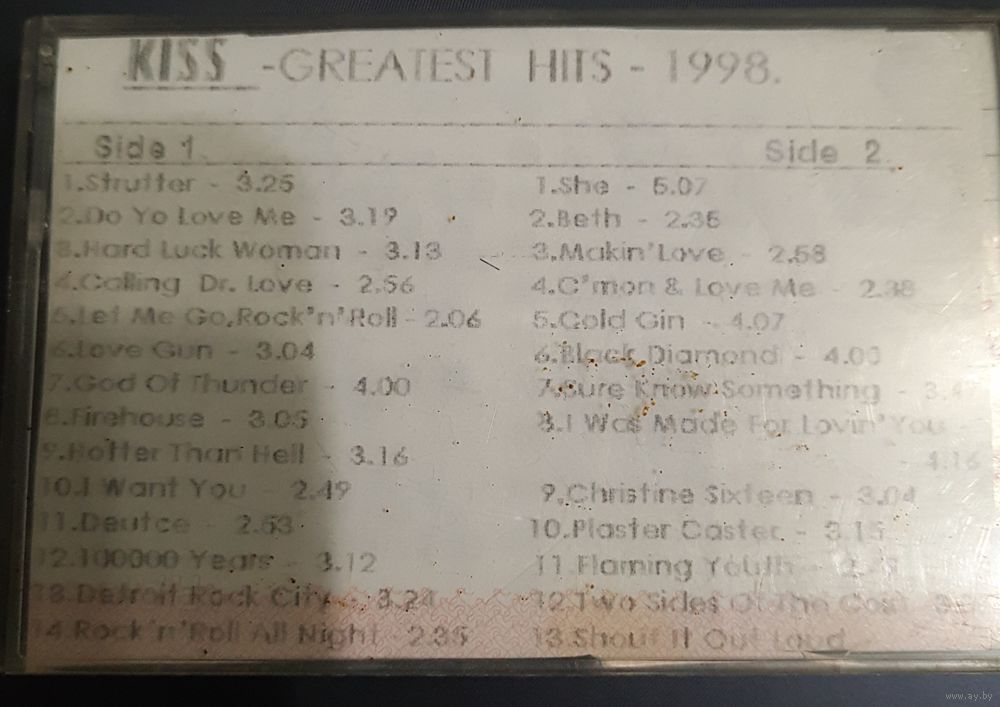 KISS -GREATEST HITS - 1998.
Side 1.
1.Strutter - 3.25
2.Do Yo Love Me - 3.19
3.Hard Luck Woman - 3.13
4.Calling Dr. Love - 2.56
5.Let Me Go,Rock'n'Roll - 2.06
6.Love Gun - 3.04
7.God Of Thunder - 4.00
8.Firehouse - 3.05
9.Hotter Than Hell - 3.16
10.I Want You - 2.49
11.Deutce - 2.53
12.100000 Years - 3.12
13.Detroit Rock City - 3.24
14.Rock'n'Roll All Night - 2.35
Side 2.
1.She - 5.07
2.Beth - 2.35
3.Makin'Love - 2.58
4.C'mon & Love Me - 2.38
5.Cold Gin - 4.07
6.Black Diamond - 4.00
7.Sure Know Something -
8.I Was Made For Lovin' You -
4.16
9.Christine Sixteen - 3.04
10.Plaster Caster - 3.15
11.Flaming Youth -
12.Two Sides Of The Coin
13.Shout It Out Loud
www.ay.by